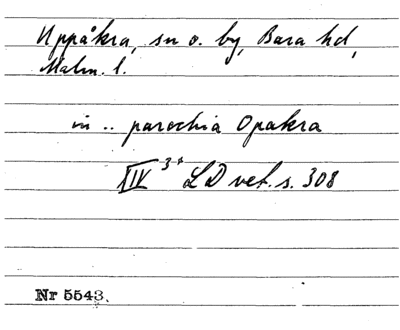 Uppåkra, sn o. by, Bara hd,
Malm. l.
in .. parochia Opakra
XIV 3/4 LD vet. s. 308
Nr 5543.